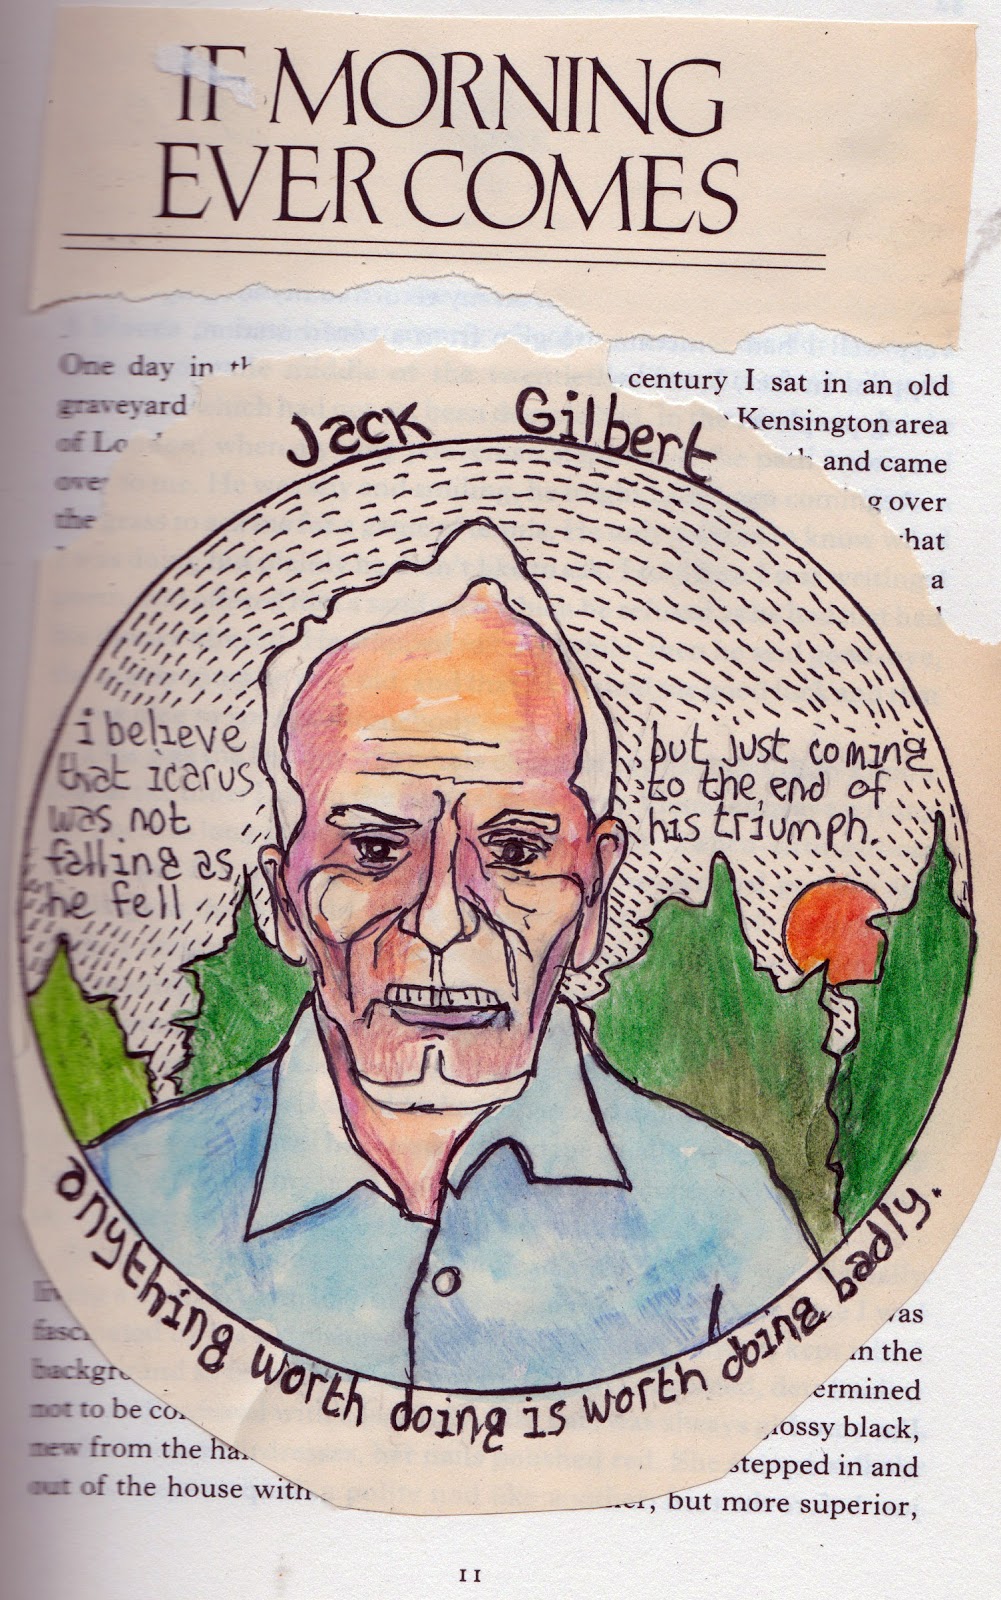 IF MORNING
EVER COMES
One day in th
century I sat in an old
graveyard
Kensington area
of Lo
and came
over
g over
the
what
a
Jack Gilbert
i believe
that icarus
was not
falling as
he fell
but just coming
to the end of
his triumph.
anything worth doing is worth doing badly.
was
fasc
in the
backgro
ermined
not to be co
glossy black,
new from the hai
stepped in and
out of the house with
but more superior,
11